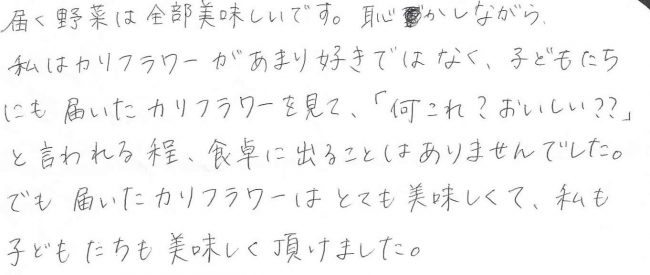 届く野菜は全部美味しいです。恥かしながら、
私はカリフラワーがあまり好きではなく、子どもたち
にも届いたカリフラワーを見て、「何これ?おいしい??」
と言われる程、食卓に出ることはありませんでした。
でも届いたカリフラワーはとても美味しくて、私も
子どもたちも美味しく頂けました。